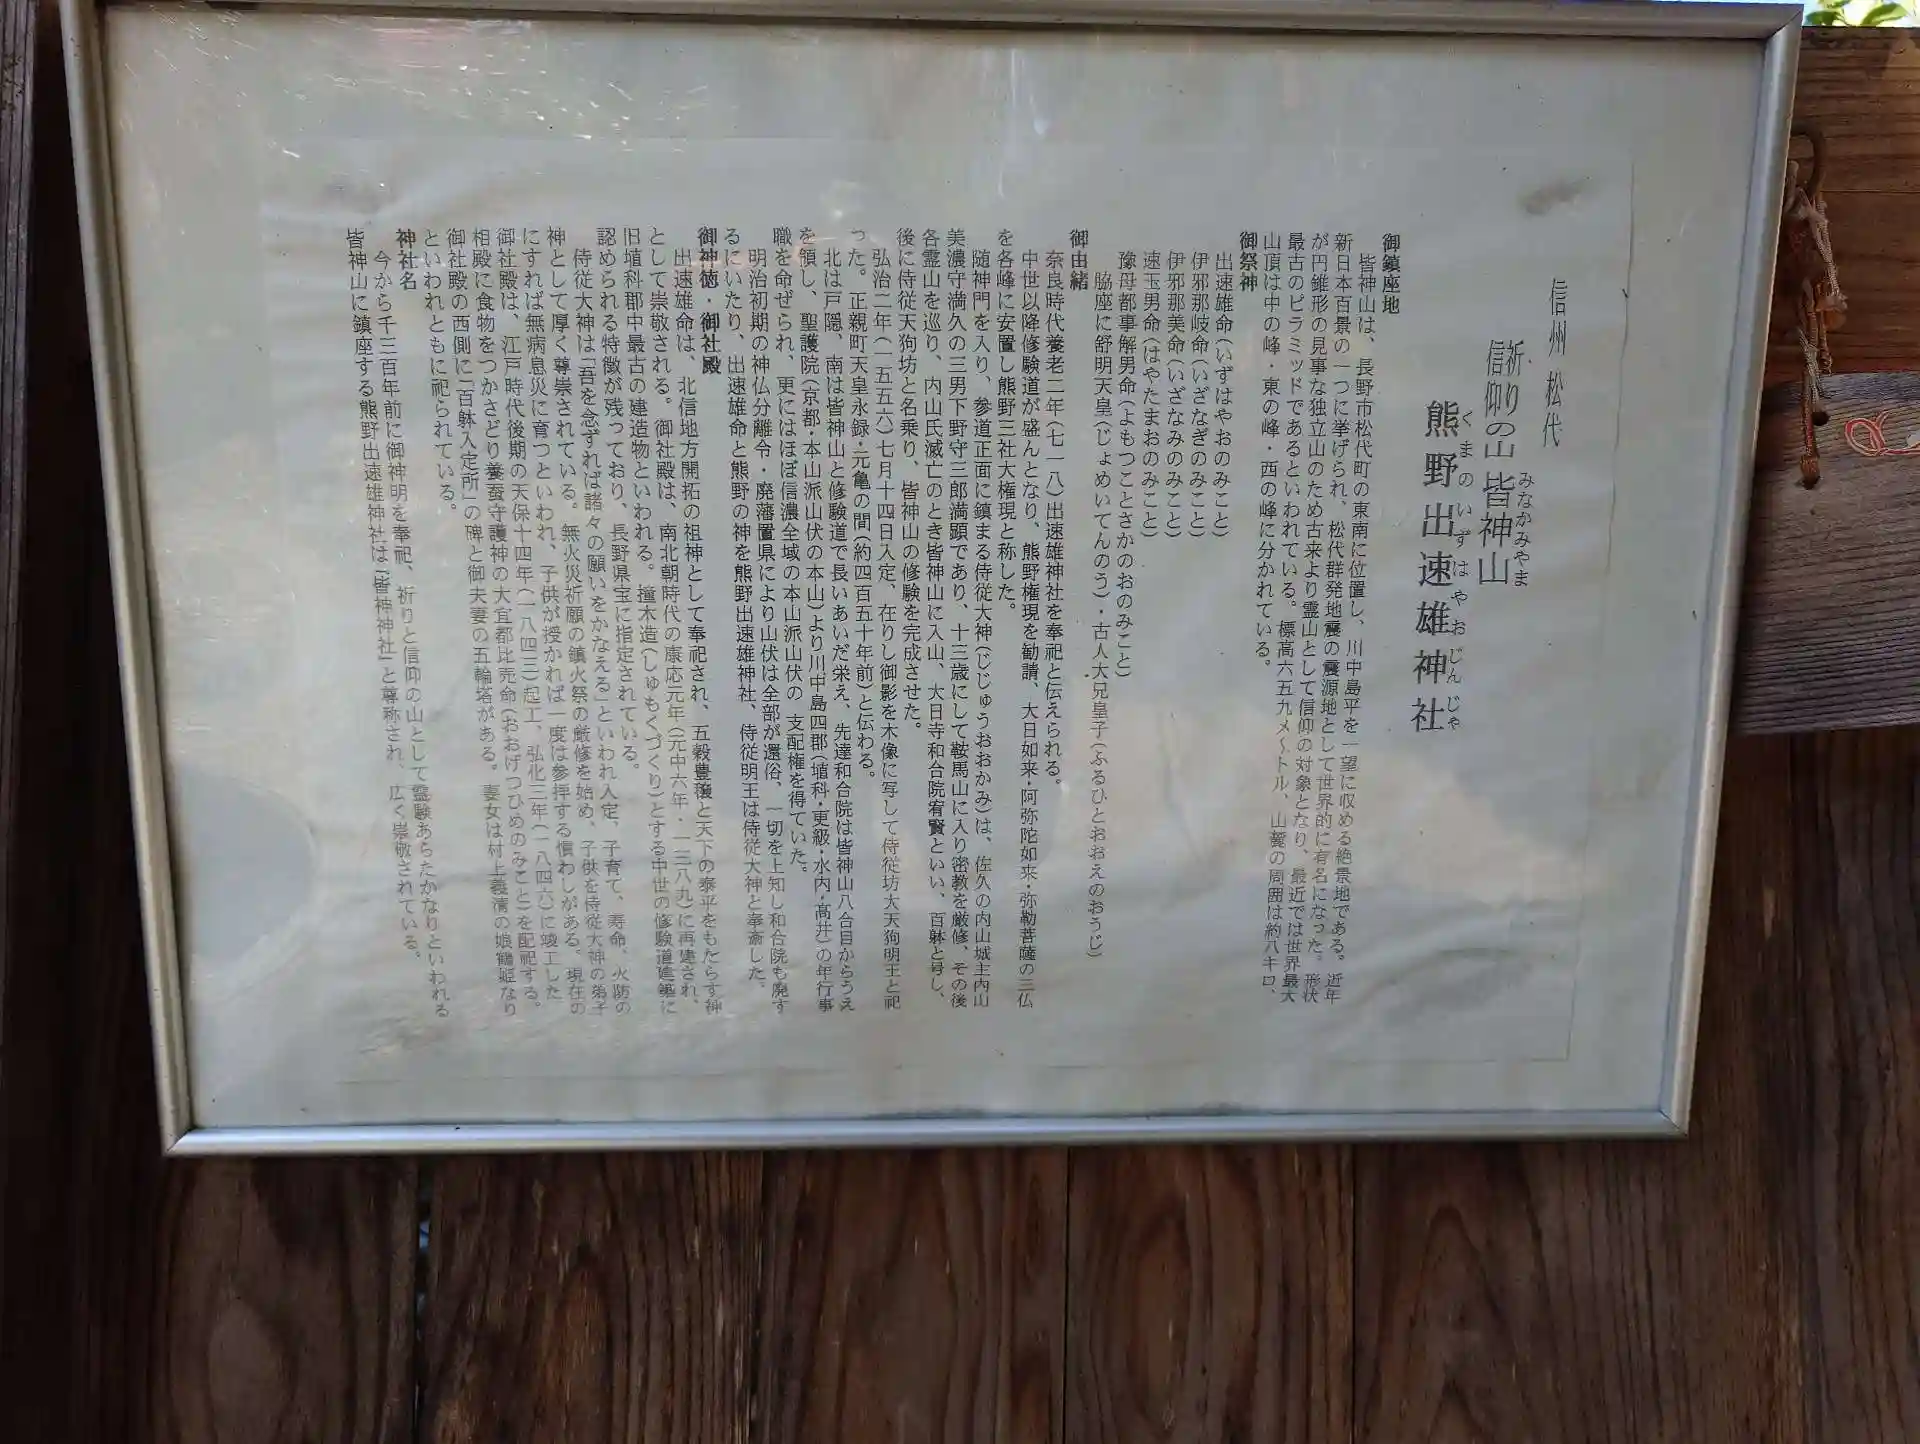 信州 松代
祈りの山
信仰の山
皆神山
みなかみやま
熊野出速雄神社
くまのいずはやおじんじゃ
御鎮座地
皆神山は、長野市松代町の東南に位置し、川中島平を一望に収める絶景地である。近年
新日本百景の一つに挙げられ、松代群発地震の震源地として世界的に有名になった。形状
が円錐形の見事な独立山のため古来より霊山として信仰の対象となり、最近では世界最大
最古のピラミッドであるといわれている。標高六五九メートル、山麓の周囲は約八キロ、
山頂は中の峰・東の峰・西の峰に分かれている。
御祭神
出速雄命(いずはやおのみこと)
伊邪那岐命(いざなぎのみこと)
伊邪那美命(いざなみのみこと)
速玉男命(はやたまおのみこと)
豫母都事解男命(よもつことさかのおのみこと)
脇座に舒明天皇(じょめいてんのう)・古人大兄皇子(ふるひとおおえのおうじ)
御由緒
奈良時代養老二年(七一八)出速雄神社を奉祀と伝えられる。
中世以降修験道が盛んとなり、熊野権現を勧請、大日如来・阿弥陀如来・弥勒菩薩の三仏
を各峰に安置し熊野三社大権現と称した。
随神門を入り、参道正面に鎮まる侍従大神(じじゅうおおかみ)は、佐久の内山城主内山
美濃守満久の三男下野守三郎満顕であり、十三歳にして鞍馬山に入り密教を厳修、その後
各霊山を巡り、内山氏滅亡のとき皆神山に入山、大日寺和合院宥賢といい、百躰と号し、
後に侍従天狗坊と名乗り、皆神山の修験を完成させた。
弘治二年(一五五六)七月十四日入定、在りし御影を木像に写して侍従坊大天狗明王と祀
った。正親町天皇永録・元亀の間(約四百五十年前)と伝わる。
北は戸隠、南は皆神山と修験道で長いあいだ栄え、先達和合院は皆神山八合目からうえ
を領し、聖護院(京都・本山派山伏の本山)より川中島四郡(埴科・更級・水内・高井)の年行事
職を命ぜられ、更にはほぼ信濃全域の本山派山伏の 支配権を得ていた。
明治初期の神仏分離令・廃藩置県により山伏は全部が還俗、一切を上知し和合院も廃す
るにいたり、出速雄命と熊野の神を熊野出速雄神社、侍従明王は侍従大神と奉斎した。
御神徳・御社殿
出速雄命は、北信地方開拓の祖神として奉祀され、五穀豊穣と天下の泰平をもたらす神
として崇敬される。御社殿は、南北朝時代の康応元年(元中六年・一三八九)に再建され、
旧埴科郡中最古の建造物といわれる。撞木造(しゅもくづくり)とする中世の修験道建築に
認められる特徴が残っており、長野県宝に指定されている。
侍従大神は「吾を念ずれば諸々の願いをかなえる」といわれ入定、子育て、寿命、火防の
神として厚く尊崇されている。無火災祈願の鎮火祭の厳修を始め、子供を侍従大神の弟子
にすれば無病息災に育つといわれ、子供が授かれば一度は参拝する慣わしがある。現在の
御社殿は、江戸時代後期の天保十四年(一八四三)起工、弘化三年(一八四六)に竣工した
相殿に食物をつかさどり養蚕守護神の大宜都比売命(おおげつひめのみこと)を配祀する。
御社殿の西側に「百躰入定所」の碑と御夫妻の五輪塔がある。妻女は村上義清の娘鶴姫なり
といわれともに祀られている。
神社名
今から千三百年前に御神明を奉祀、祈りと信仰の山として霊験あらたかなりといわれる
皆神山に鎮座する熊野出速雄神社は「皆神神社」と尊称され、広く崇敬されている。